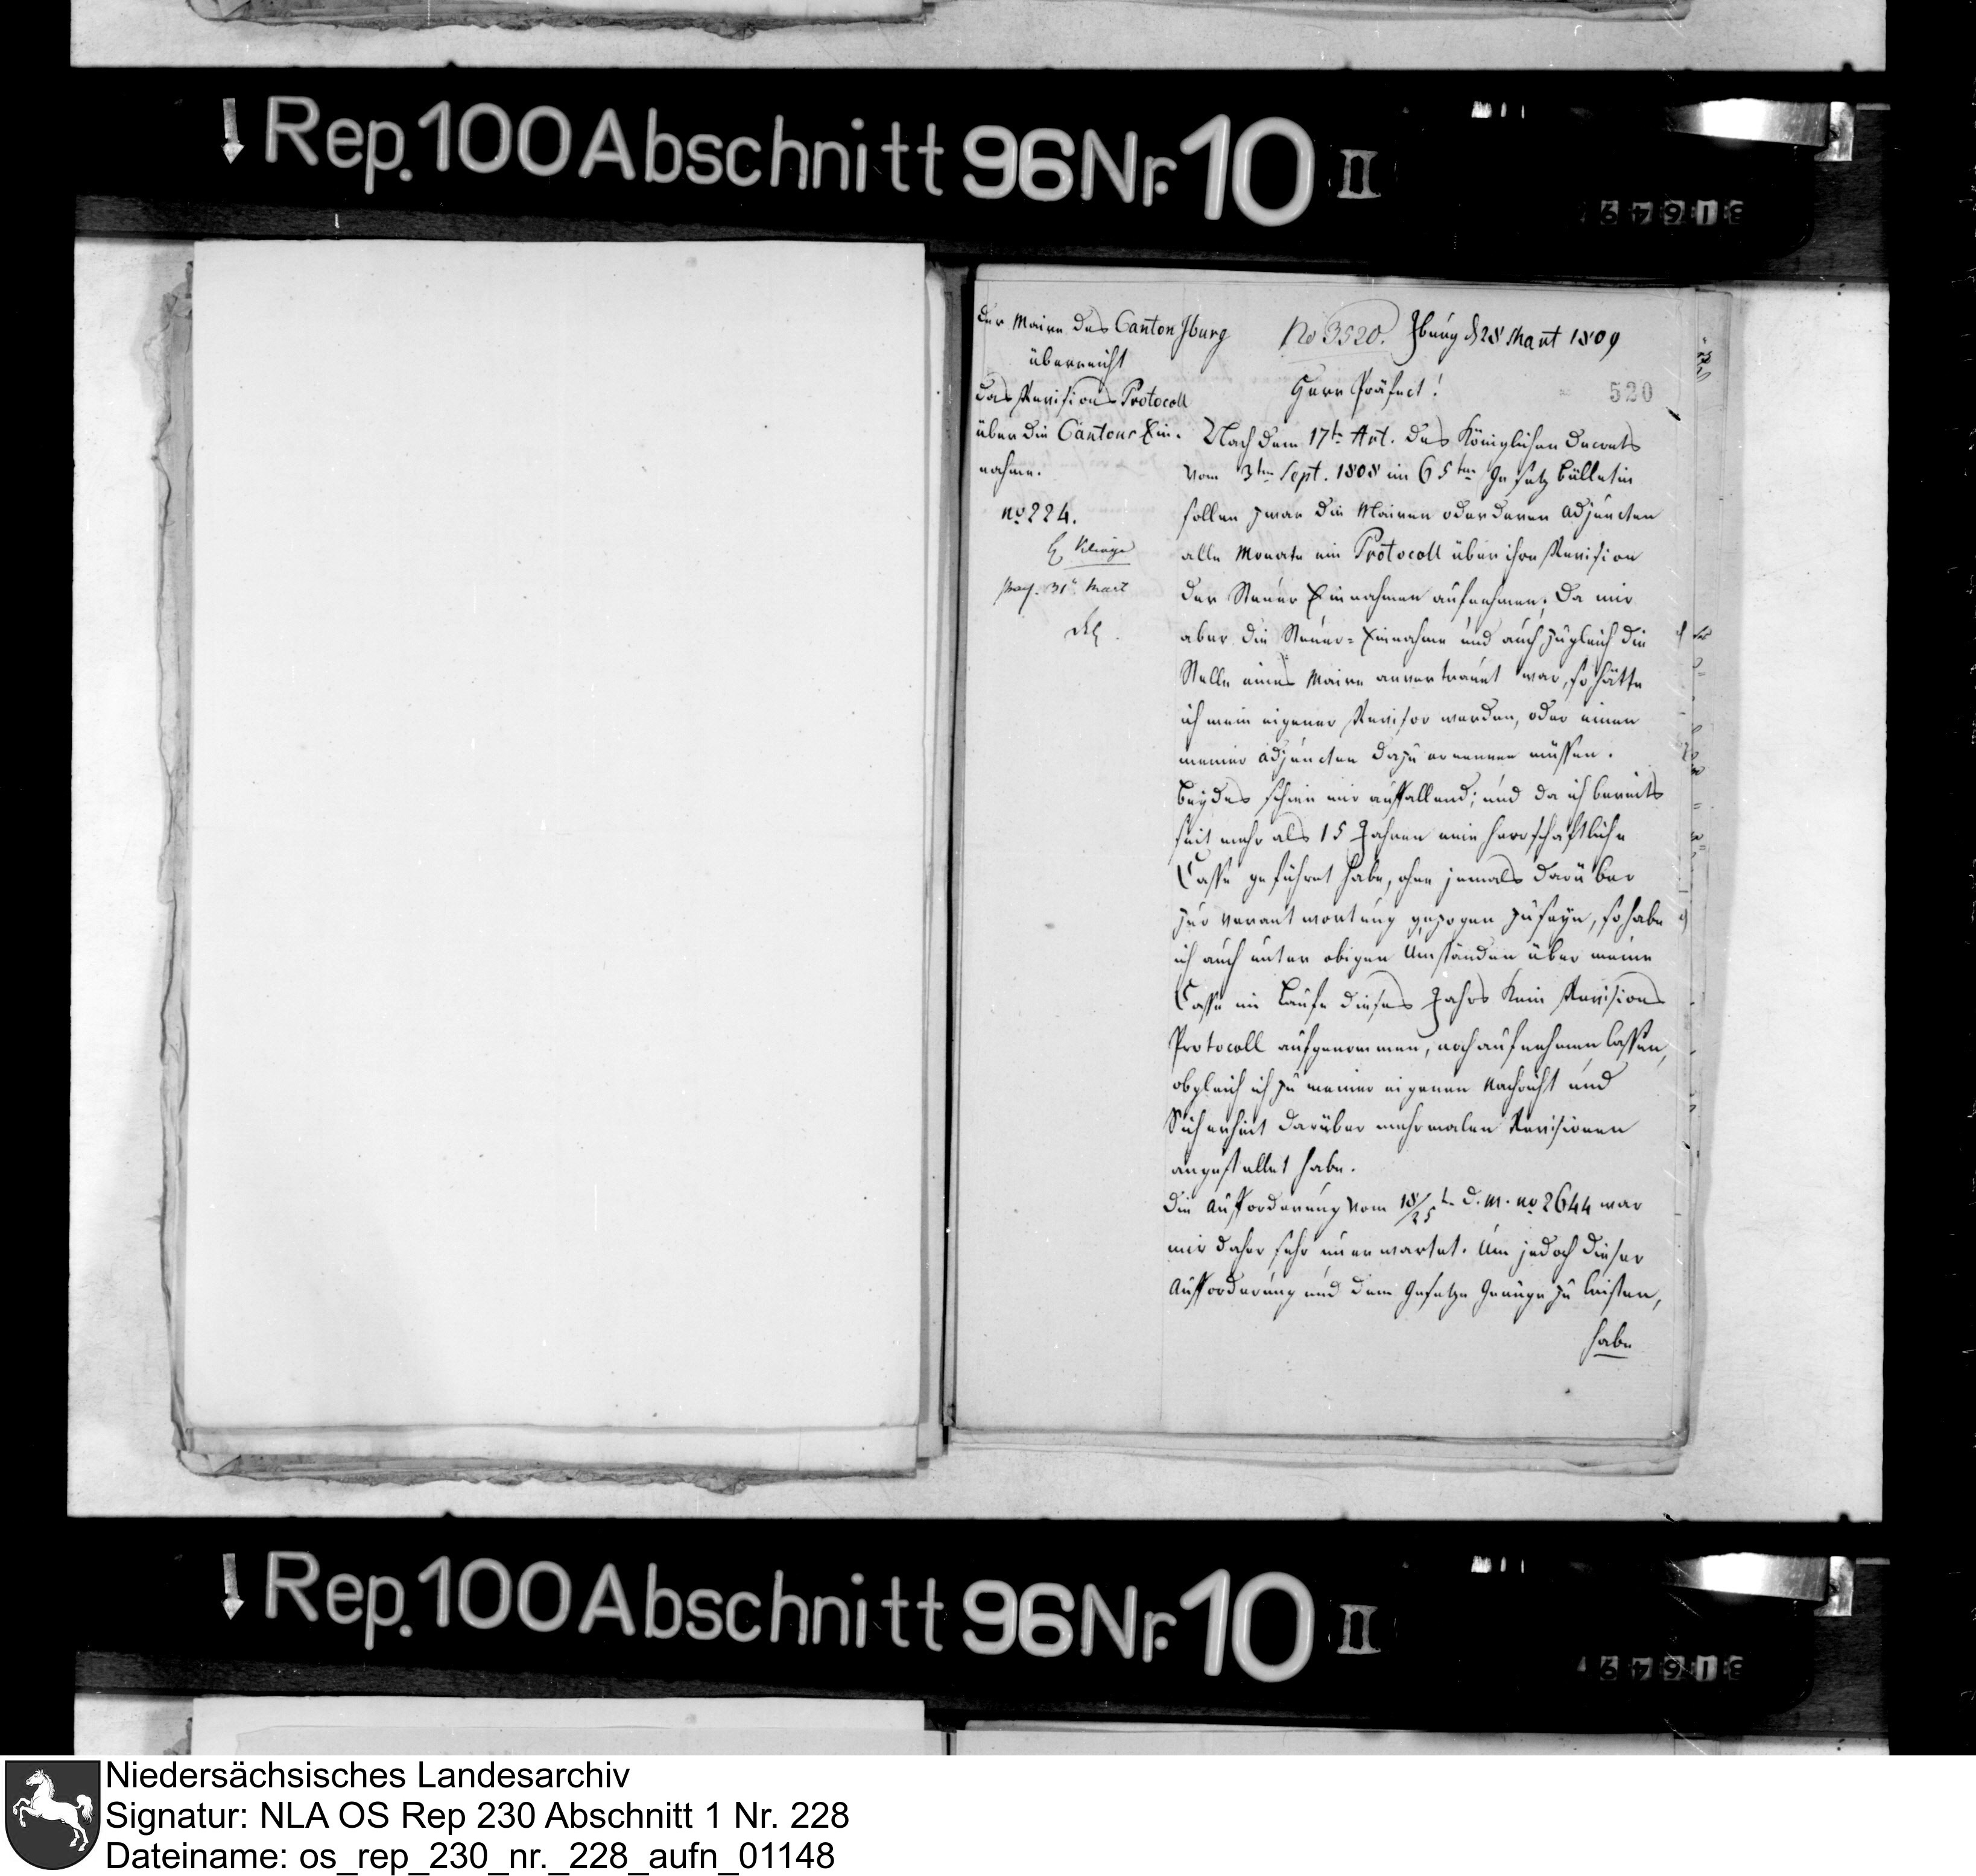 Rep. 100 Abschnitt 96 Nr. 10 II
Der Maire des Canton Iburg
überreicht
das Revisions Protocoll
über die Cantons Ein-
nahme.
no 224.
praes. 31t Mart
No 3520. Iburg d 28 Mart 1809
520
Herr Präfect!
Nach dem 17t. Art. des Königlichen Decrets
vom 3ten Sept. 1808 im 65ten Gesetz Bülletin
sollen zwar die Mairen oder deren Adjuncten
alle Monate ein Protocoll über ihre Revision
der Steuer Einnahmen aufnehmen; Da mir
aber die Steuer-Einnahme und auch zugleich die
Stelle eines Maire anvertrauet war, so hätte
ich mein eigener Revisor werden, oder einen
meiner Adjuncten dazu ernennen müssen.
Beydes schien mir auffallend; und da ich bereits
seit mehr als 15 Jahren eine herrschaftliche
Casse geführet habe, ohne jemals darüber
zur Verantwortung gezogen zu seyn, so habe
ich auch unter obigen Umständen über meine
Casse im Laufe dieses Jahrs kein Revisions
Protocoll aufgenommen, noch aufnehmen lassen,
obgleich ich zu meiner eigenen Nachricht und
Sicherheit darüber mehrmalen Revisionen
angestellet habe.
Die Aufforderung vom 18/25 t. d. M. no 2644 war
mir daher sehr unerwartet. Um jedoch dieser
Aufforderung und dem Gesetze Genüge zu leisten,
habe
Rep. 100 Abschnitt 96 Nr. 10 II
Niedersächsisches Landesarchiv
Signatur: NLA OS Rep 230 Abschnitt 1 Nr. 228
Dateiname: os_rep_230_nr._228_aufn_01148